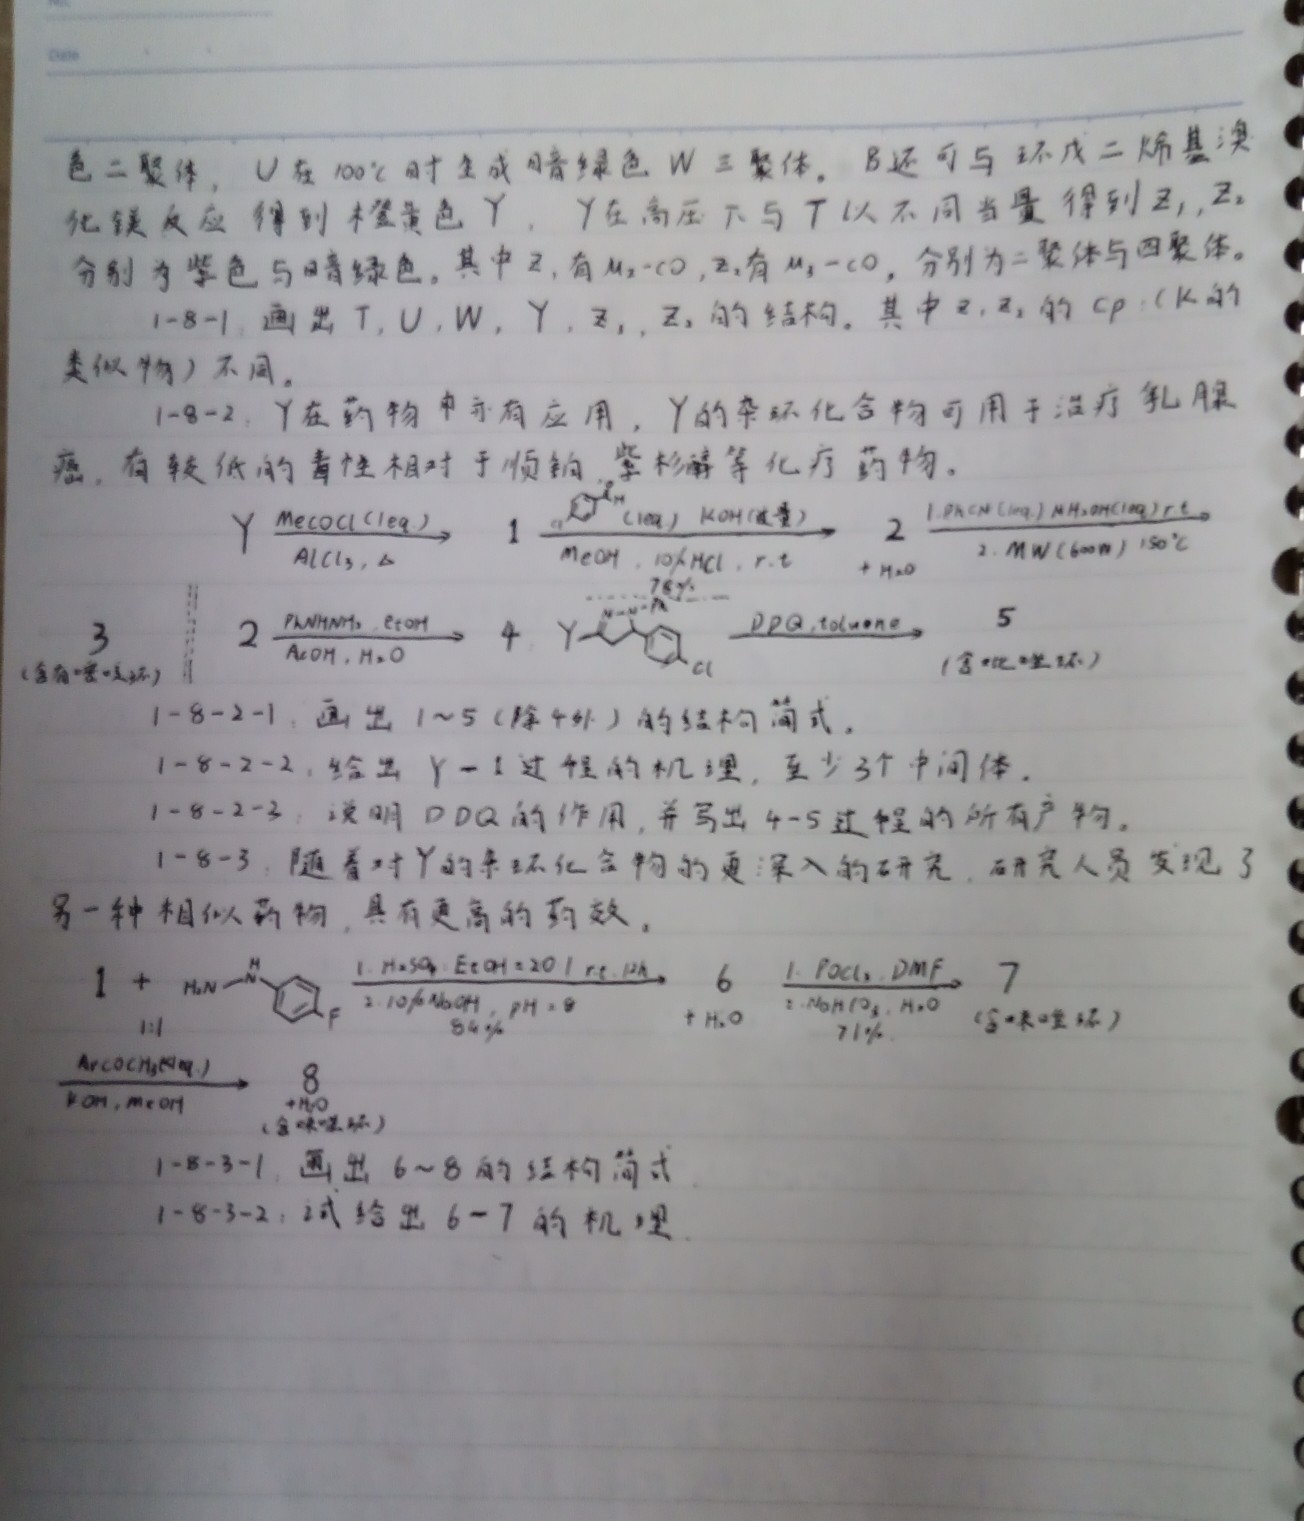 Date
色二聚体, U在100℃时生成暗绿色W三聚体。B还可与环戊二烯基溴
化镁反应得到橙黄色Y, Y在高压下与T以不同当量得到Z₁, Z₂
分别为紫色与暗绿色。其中Z₁有μ₂-CO, Z₂有μ₃-CO, 分别为二聚体与四聚体。
1-8-1. 画出T, U, W, Y, Z₁, Z₂的结构。其中Z₁Z₂的Cp (K的
类似物)不同。
1-8-2. Y在药物中亦有应用, Y的杂环化合物可用于治疗乳腺
癌, 有较低的毒性相对于顺铂、紫杉醇等化疗药物。
Y MeCOCl(1eq.) AlCl₃, △ 1 Cl H (1eq.) KOH(过量) MeOH, 10%HCl, r.t 2 + H₂O 1.PhCN(1eq.) NH₂OH(1eq) r.t 2. MW(600W) 150℃
78%
3 (含有嘧啶环) 2 PhNHNH₂, EtOH AcOH, H₂O 4. Y N-N-Ph Cl DDQ, toluene 5 (含吡唑环)
1-8-2-1. 画出1~5(除4外)的结构简式。
1-8-2-2. 给出Y-1过程的机理, 至少3个中间体.
1-8-2-3. 说明DDQ的作用, 并写出4-5过程的所有产物。
1-8-3. 随着对Y的杂环化合物的更深入的研究, 研究人员发现了
另一种相似药物, 具有更高的药效。
1 + H₂N N H F 1:1 1. H₂SO₄. EtOH=20/1 r.t. 12h 2. 10%NaOH, pH=8 84% 6 + H₂O 1. POCl₃. DMF 2. NaHCO₃, H₂O 71% 7 (含咪唑环)
ArCOCH₃(1eq.) KOH, MeOH 8 +H₂O (含咪唑环)
1-8-3-1. 画出6~8的结构简式.
1-8-3-2. 试给出6-7的机理.